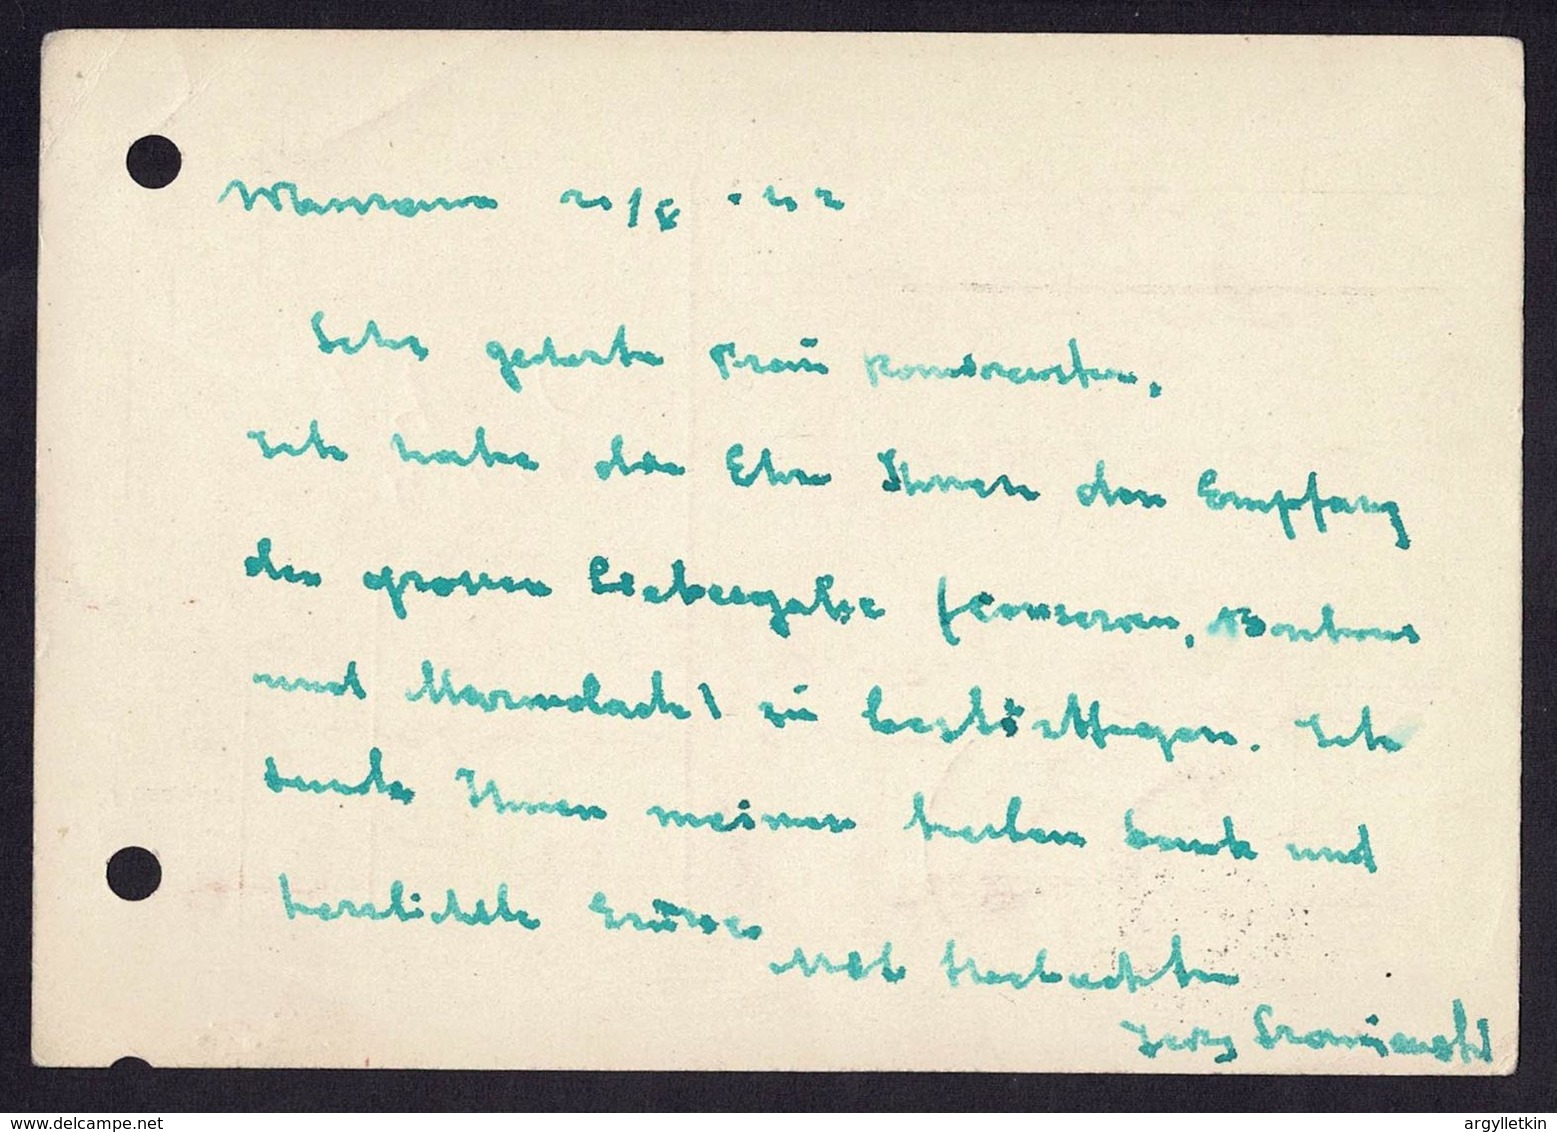 Warszawa 20/8 . 42
Sehr geehrte Frau
Ich habe die Ehre Ihnen den Empfang
der grossen Liebesgabe (Conserven, Bonbons
und Marmelade) zu bestättigen. Ich
sende Ihnen meinen besten Dank und
herzlichste Grüsse
Mit Hochachten
Jerzy
argylletkin